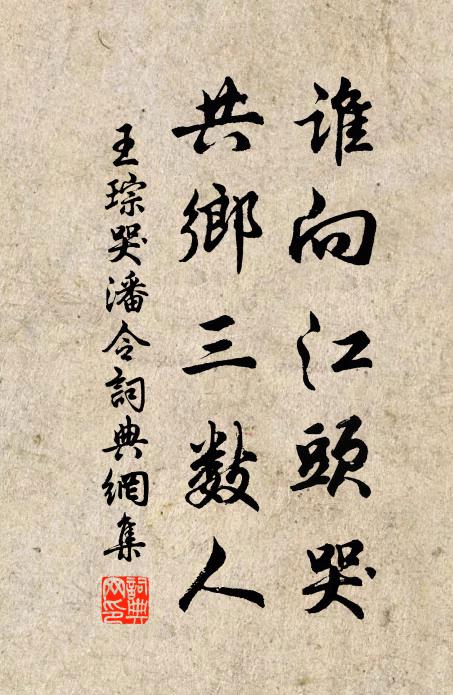 誰向江頭哭
共鄉三數人
王琮哭潘令詞典網集
詞典
網印